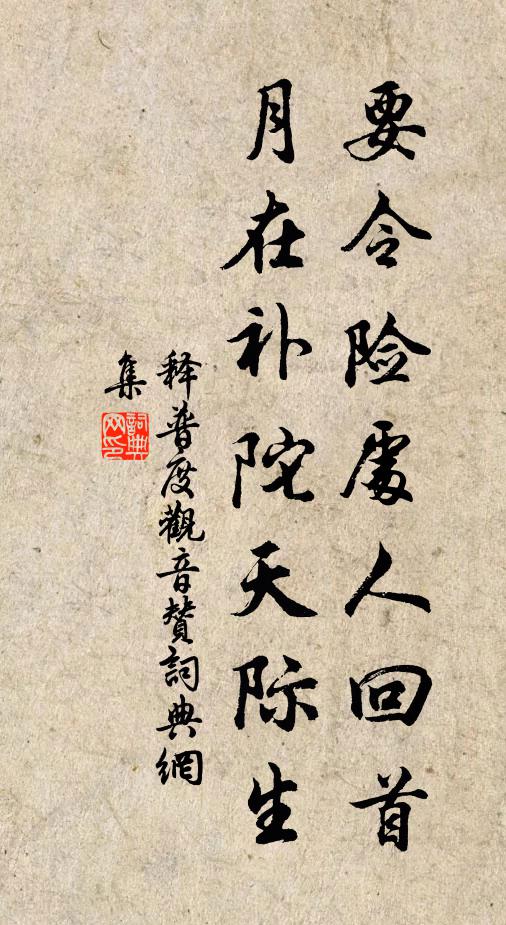 要令险處人回首
月在补陀天际生
释普度觀音赞詞典網
集
詞典网印